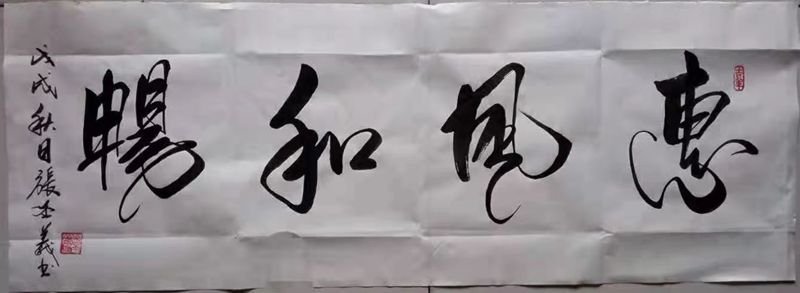 惠風和暢
戊戌秋日張本義書